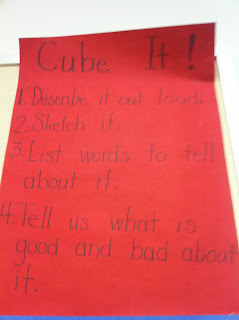 Cube It!
1. Describe it out loud.
2. Sketch it.
3. List words to tell
about it.
4. Tell us what is
good and bad about
it.